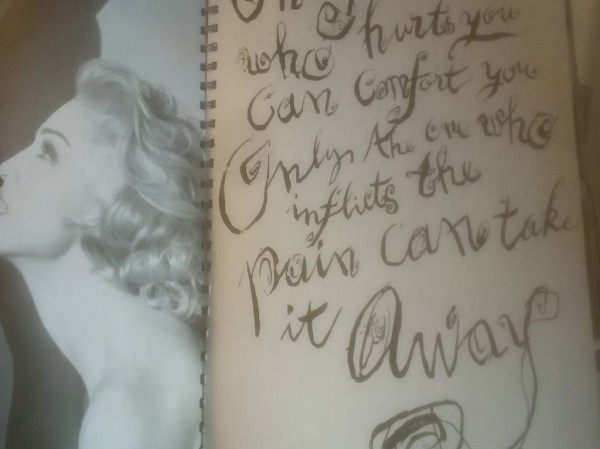 who hurts you
can comfort you
Only the one who
inflicts the
pain can take
it Away